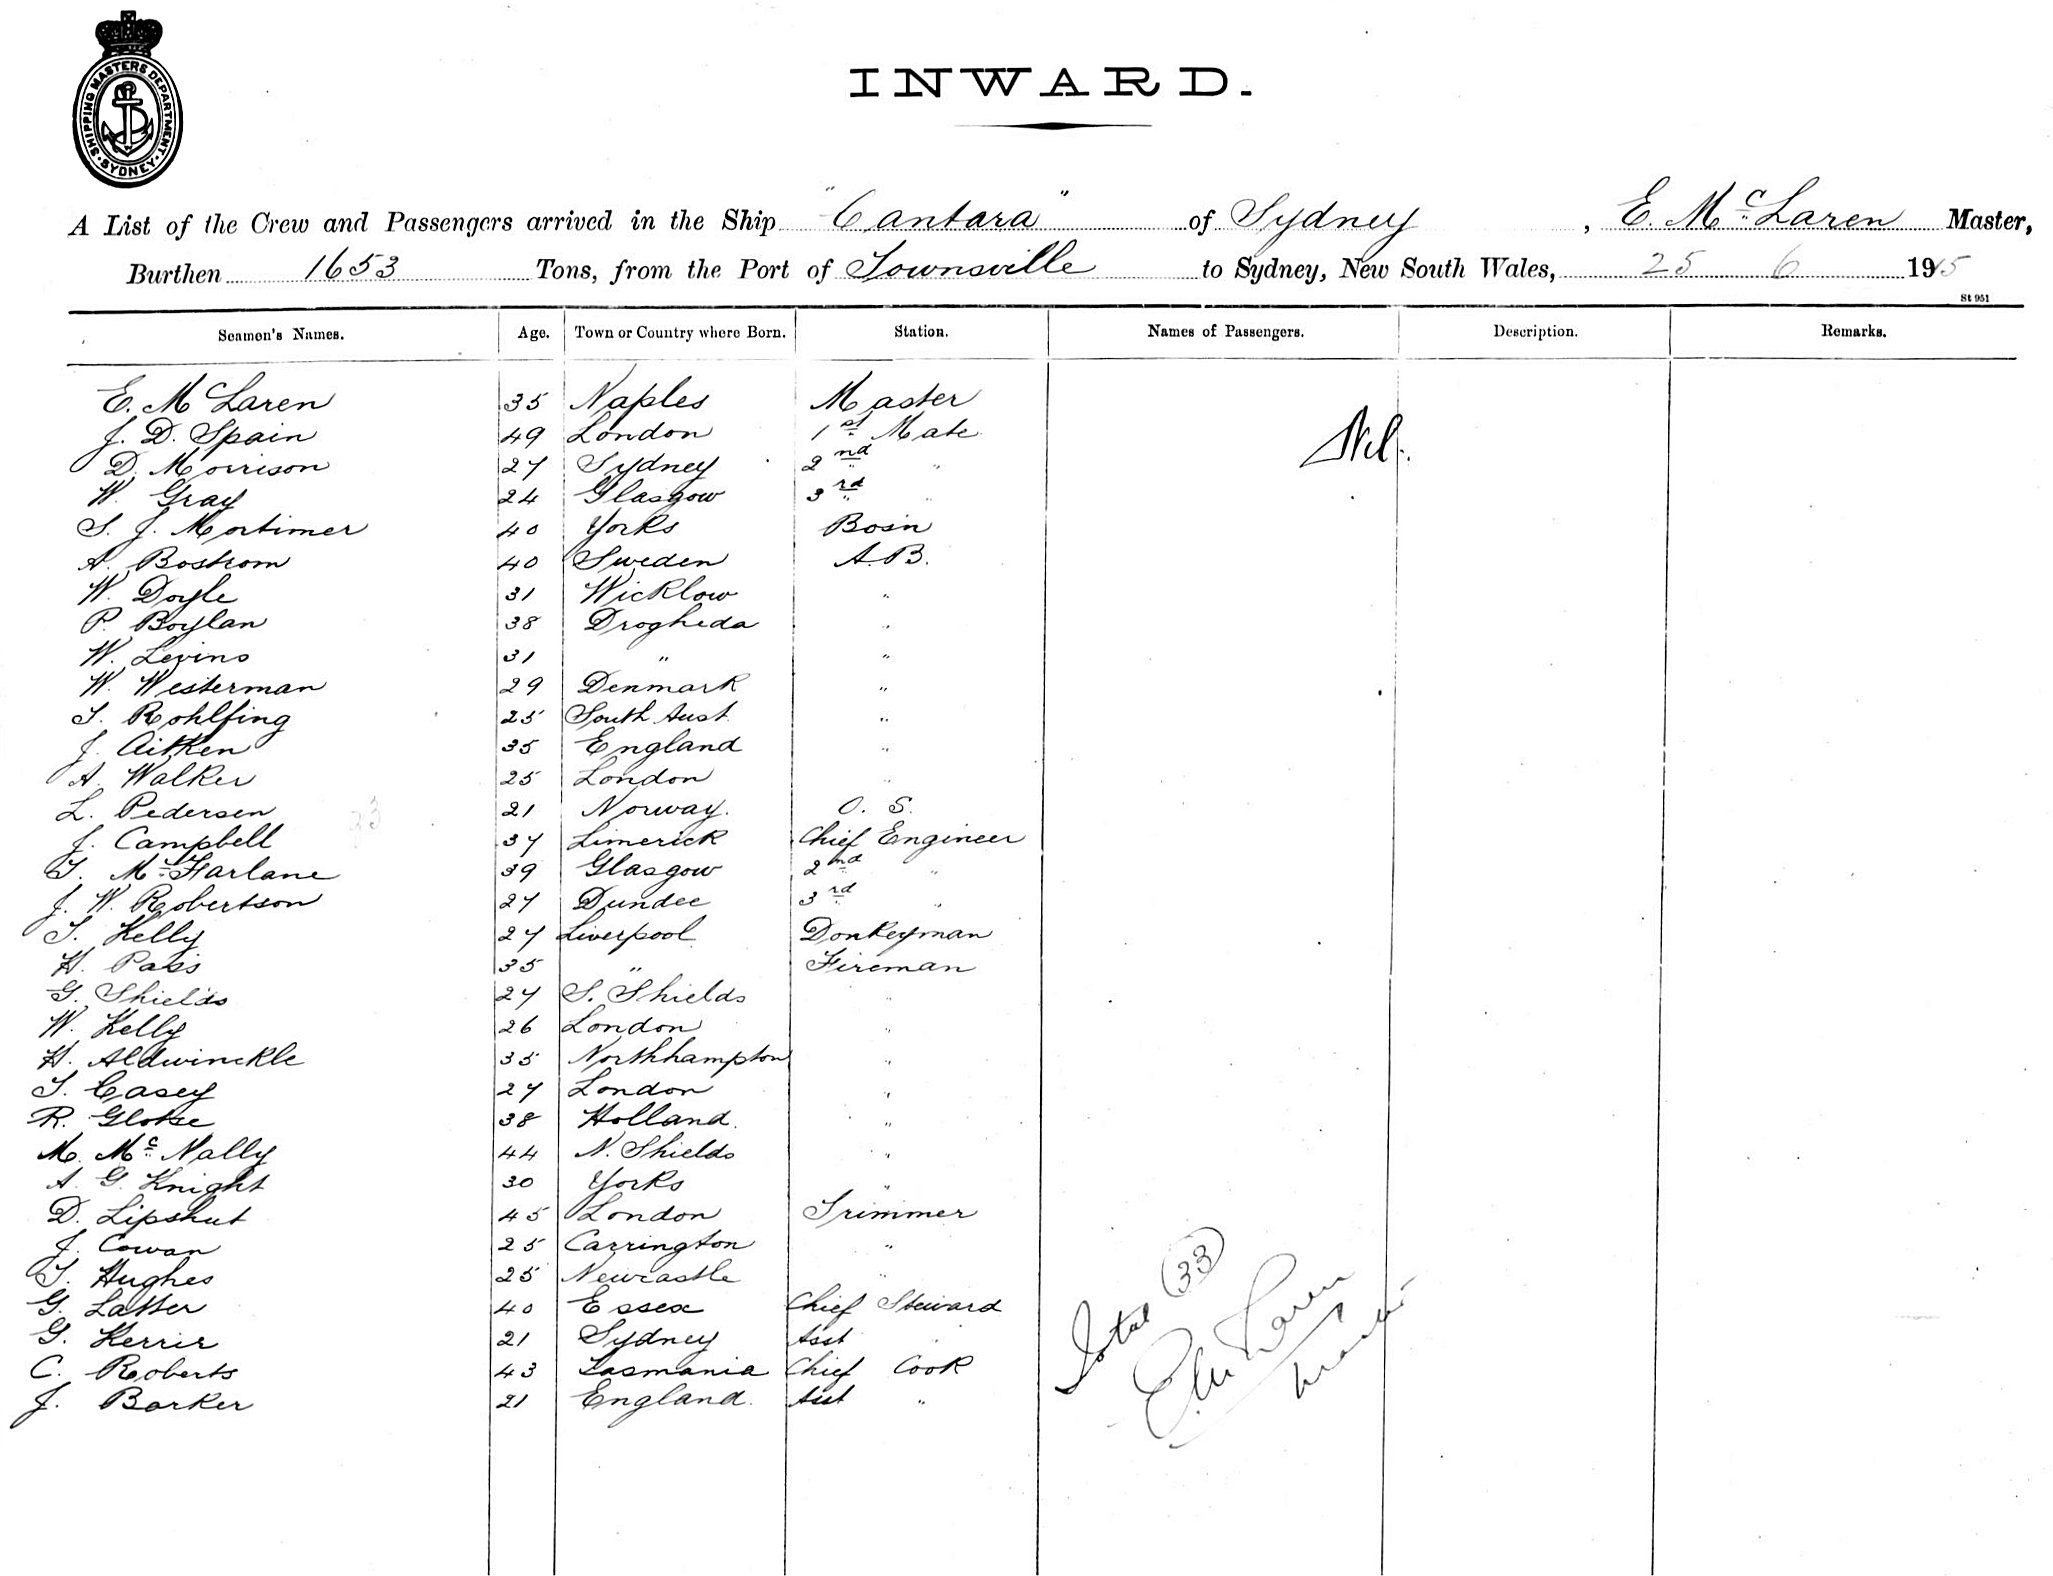 SHIPPING MASTERS DEPARTMENT · SYDNEY ·
INWARD.
A List of the Crew and Passengers arrived in the Ship "Cantara" of Sydney, E. McLaren Master,
Burthen 1653 Tons, from the Port of Townsville to Sydney, New South Wales, 25 6 1915
St 951
Seamen's Names. Age. Town or Country where Born. Station. Names of Passengers. Description. Remarks.
E. McLaren 35 Naples Master
Nil.
J. D. Spain 49 London 1st Mate
D. Morrison 27 Sydney 2nd "
W. Gray 24 Glasgow 3rd "
S. J. Mortimer 40 Yorks Bosn
A. Bostrom 40 Sweden A.B.
W. Doyle 31 Wicklow "
P. Boylan 38 Drogheda "
W. Levins 31 " "
W. Westerman 29 Denmark "
T. Rohlfing 25 South Aust. "
J. Aitken 35 England "
A. Walker 25 London "
L. Pedersen 21 Norway. O. S.
J. Campbell 37 Limerick Chief Engineer
T. McFarlane 39 Glasgow 2nd "
J. W. Robertson 27 Dundee 3rd "
T. Kelly 27 Liverpool Donkeyman
H. Pass 35 " Fireman
G. Shields 27 S. Shields "
W. Kelly 26 London "
H. Aldwinckle 35 Northhampton "
T. Casey 27 London "
R. Glotze 38 Holland. "
M. McNally 44 N. Shields "
A. G. Knight 30 Yorks "
D. Lipshut 45 London Trimmer
J. Cowan 25 Carrington "
T. Hughes 25 Newcastle "
G. Latter 40 Essex Chief Steward
G. Kerrir 21 Sydney Asst "
C. Roberts 43 Tasmania Chief Cook
J. Barker 21 England. Asst "
Total 33
E McLaren
Master